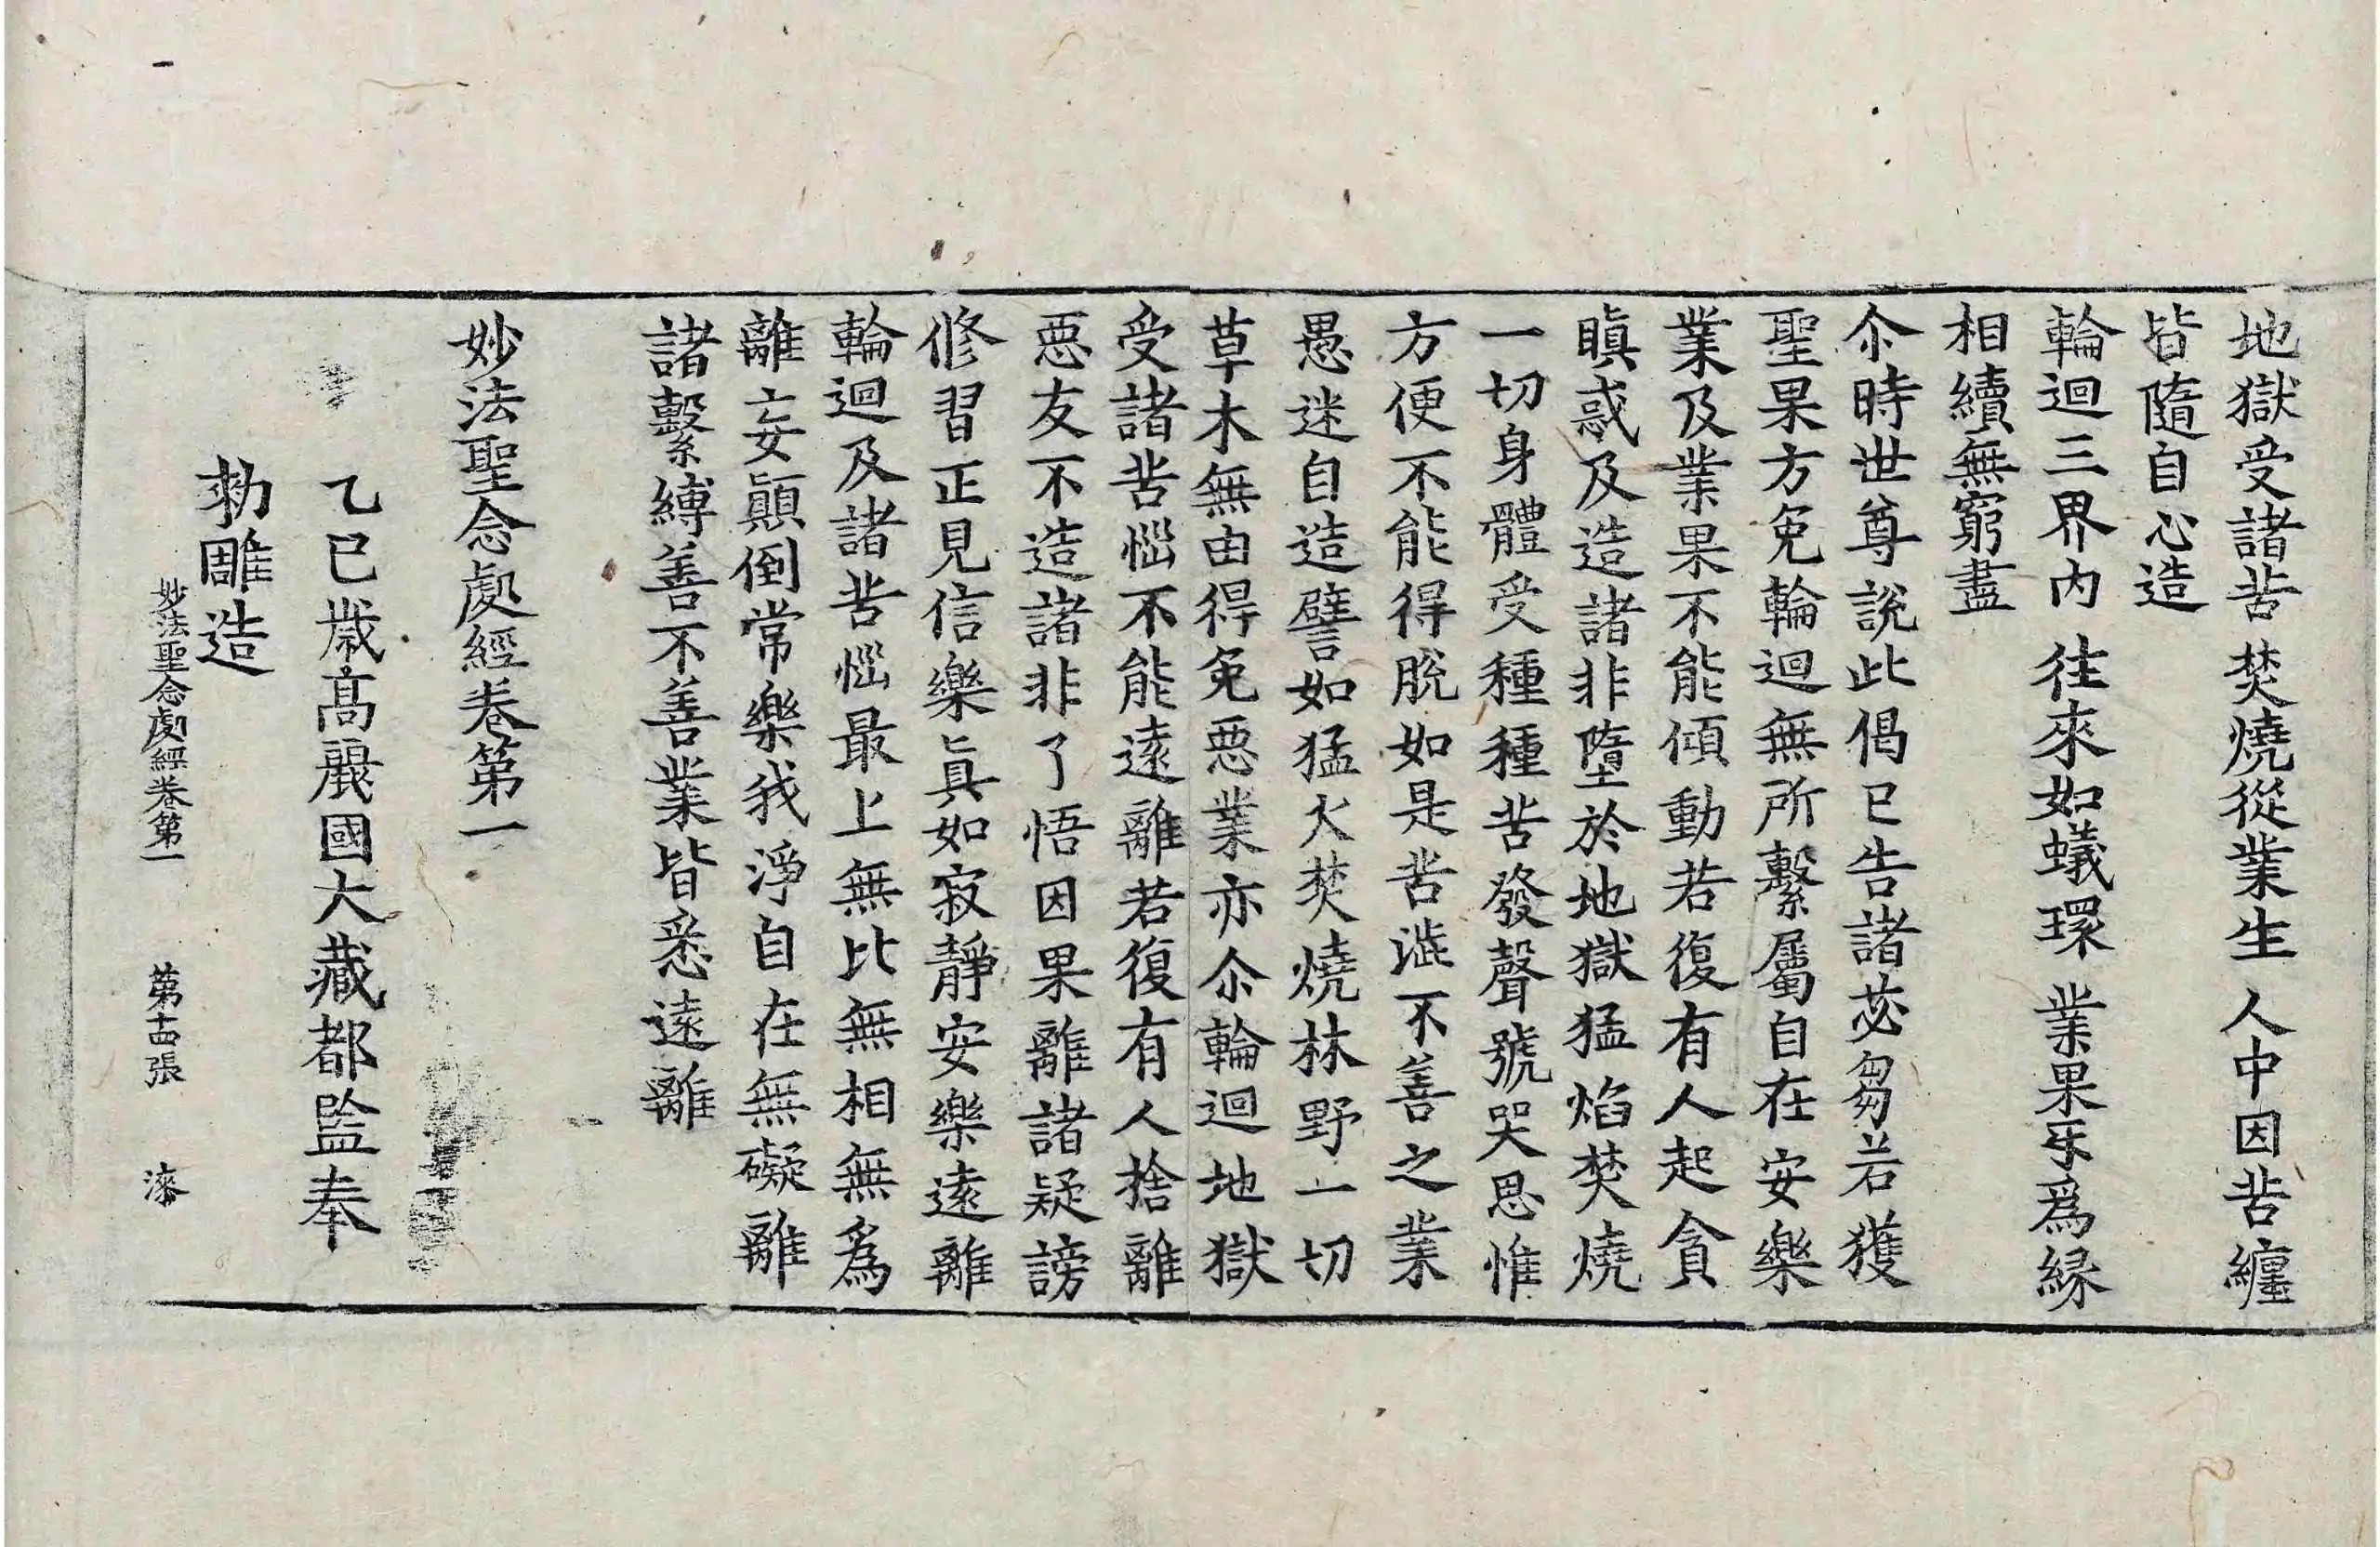 地獄受諸苦 焚燒從業生 人中因苦纏
皆隨自心造
輪迴三界內 往來如蟻環 業果㸦爲縁
相續無窮盡
尒時世尊說此偈已告諸苾芻若獲
聖果方免輪迴無所繫屬自在安樂
業及業果不能傾動若復有人起貪
瞋惑及造諸非墮於地獄猛焰焚燒
一切身體受種種苦發聲號哭思惟
方便不能得脫如是苦澁不善之業
愚迷自造譬如猛火焚燒林野一切
草木無由得免惡業亦尒輪迴地獄
受諸苦惱不能遠離若復有人捨離
惡友不造諸非了悟因果離諸疑謗
修習正見信樂眞如寂靜安樂遠離
輪迴及諸苦惱最上無比無相無爲
離妄顚倒常樂我淨自在無礙離
諸繫縛善不善業皆悉遠離
妙法聖念處經卷第一
乙巳歲高麗國大藏都監奉
勑雕造
妙法聖念處經卷第一 第十四張 漆